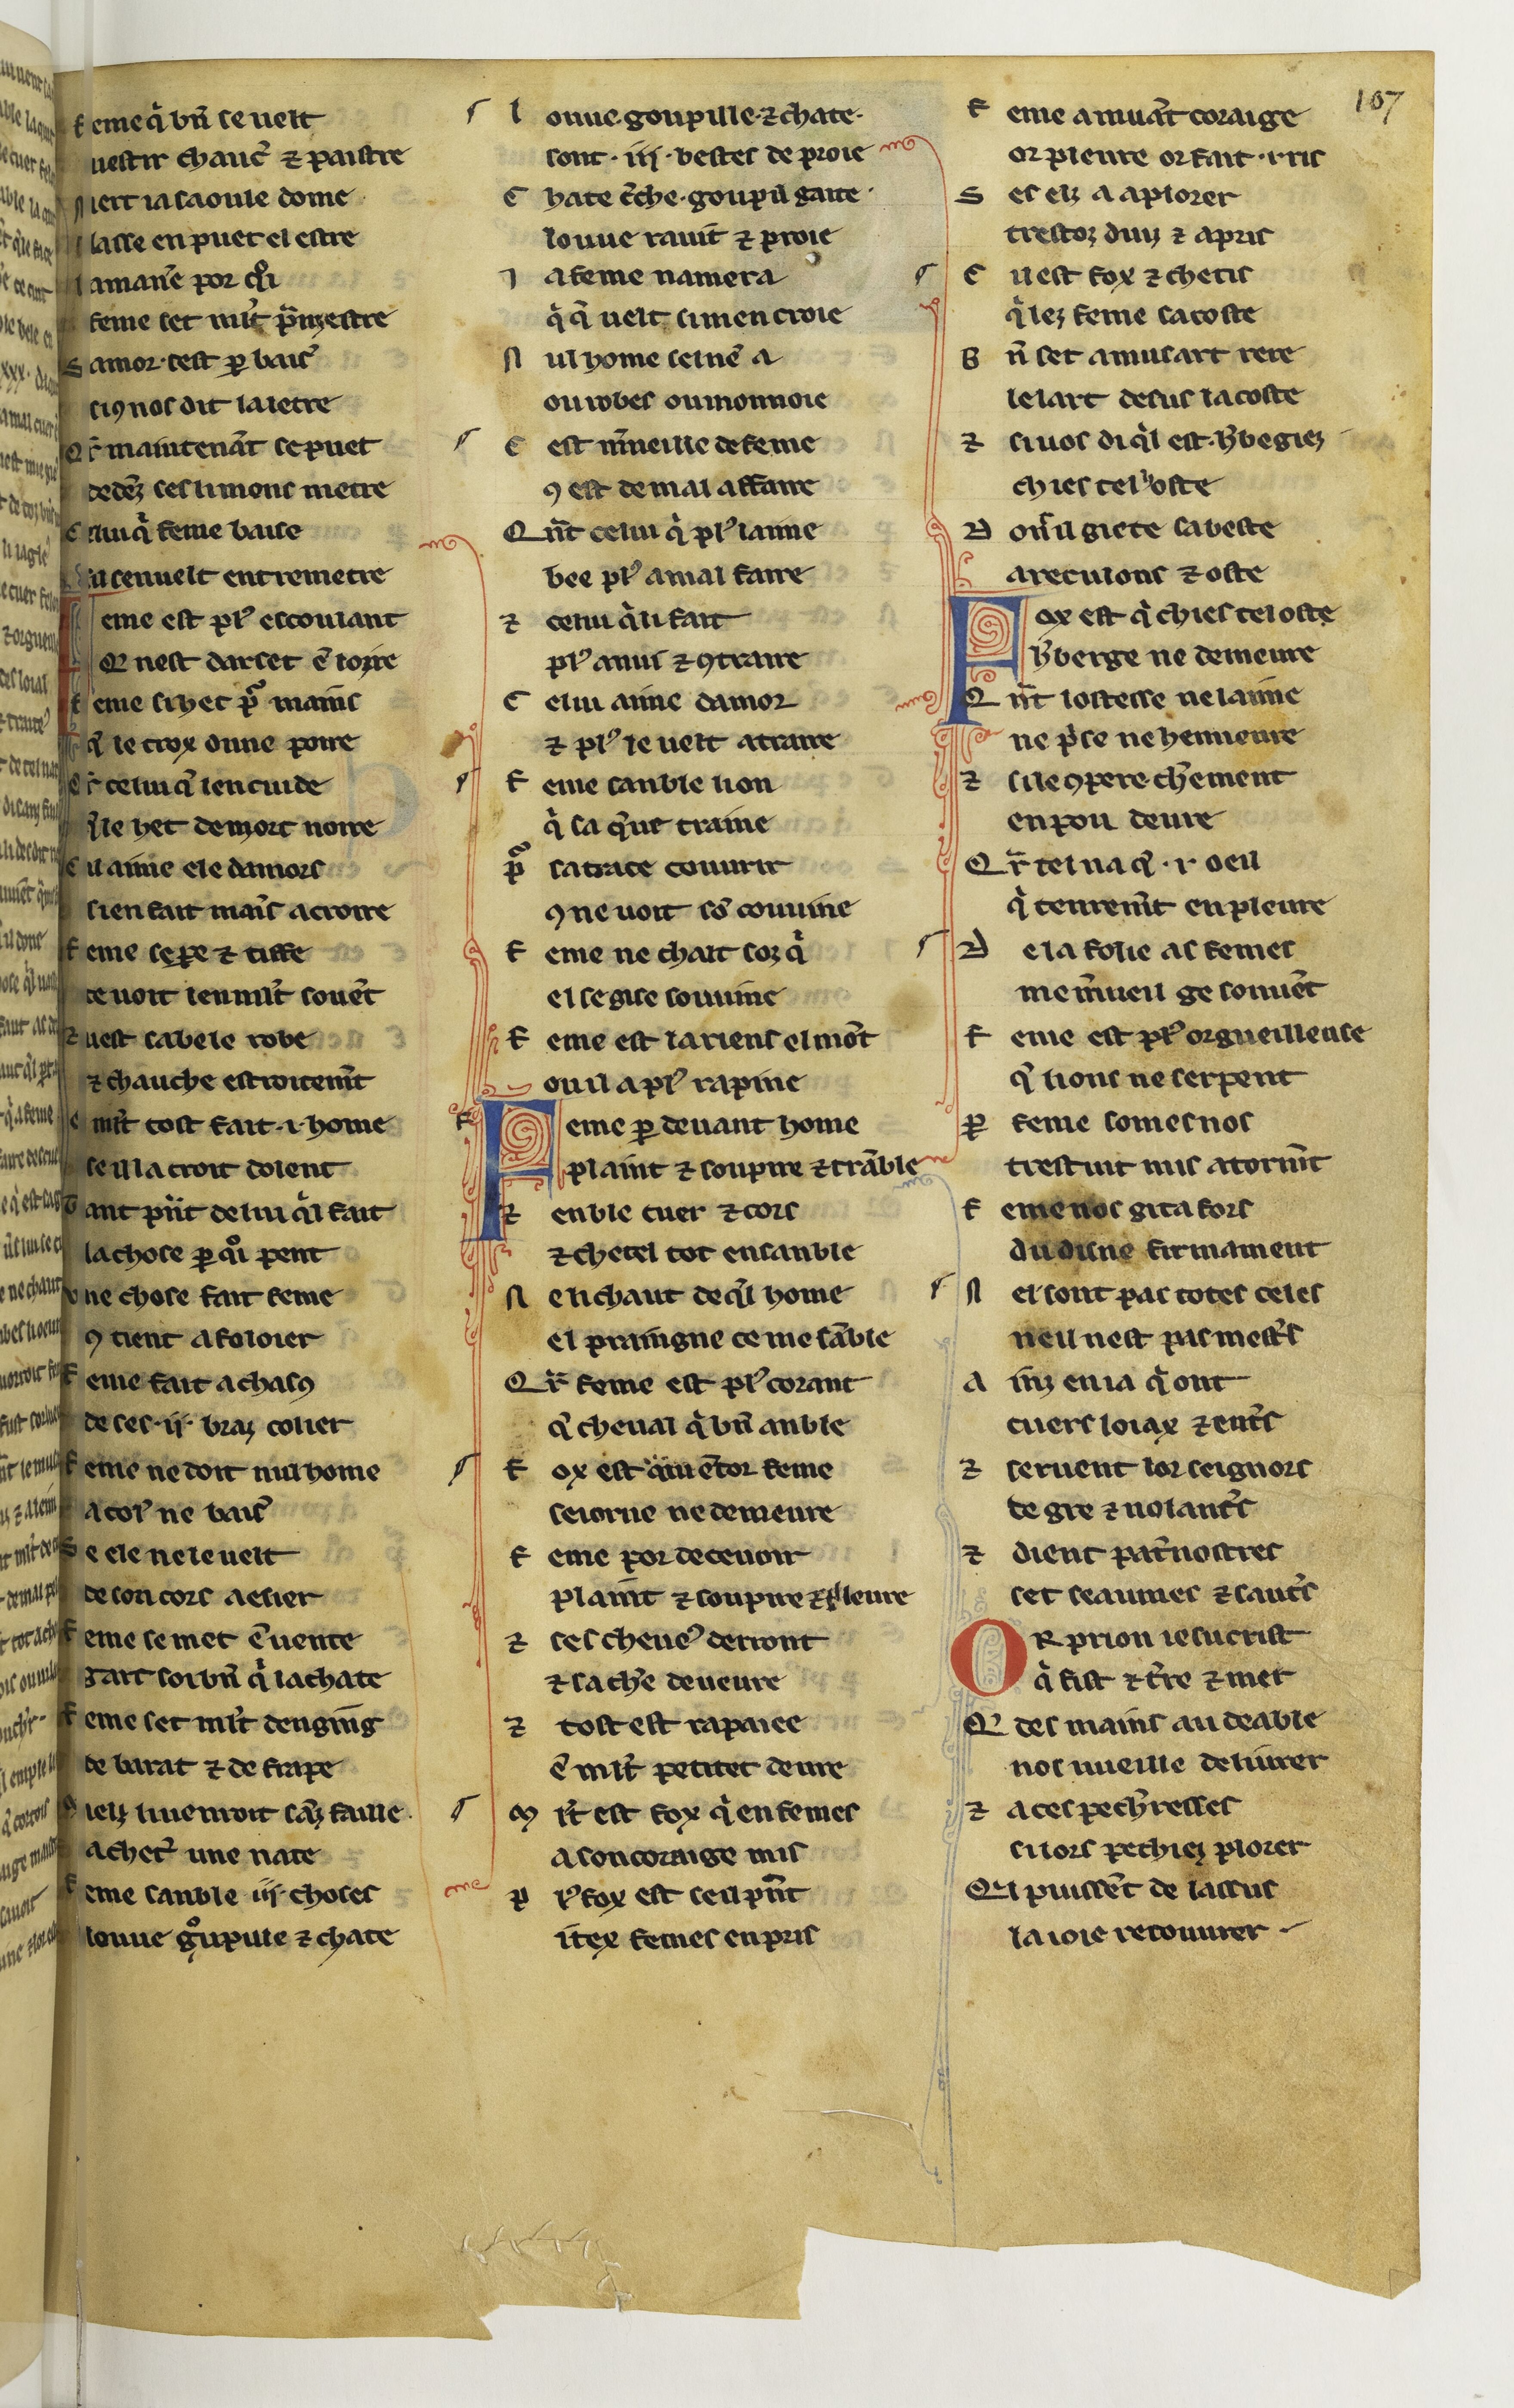 feme q̾ bn̄ se uelt
uestir chauc᷑ ⁊ paistre
N iert ia saoule dome
lasse en puet el estre
feme set ml̄t
S amor cest ꝑ bais᷑
siꝯ nos dit la letre
Q͛ maintenāt se puet
dedēz ses limons metre
C elui q̾ feme baise
il sen uelt entremetre
F eme est pl᷒ escoulant
Q nest darset ē
feme si het mains
q̄ le trox dune poire
C͛ celui q̄ len cuide
q̄le het de mors noire
C il aime ele damors
sien fait mais acroire
feme se pere ⁊ tiffe
ce uoit len ml̄t souēt
⁊ uest sa bele robe
⁊ chauche estroitem̄t
C ml̄t tost fait · i · home
se il la croit dolent
T ant pn̄t de lui q̄l fait
la chose ꝑ quoi pent
U ne chose fait feme
ꝯ tient a foloier
F eme fait a chascꝯ
de ses · ii · braz colier
F eme ne doit nul home
acol᷑ ne bais᷑
S e ele ne le uelt
de son cors aesier
F eme se met ē uente
gart soi bn̄ q̾ lachate
F eme set ml̄t denging
de barat ⁊ de frape
M ielz li uenroit sāz faille
achet᷑ une nate
F eme sanble iii choses
louue goupille ⁊ chate
l ouue · goupille · ⁊ chate ·
sont · iii · bestes de proie
C hate c̄che · goupil gaite ·
louue rauit ⁊ proie
J a feme namera
q̾ q̄ uelt si men croie
N ul home sel nē a
ou robes ou monnoie
C est m̄ueille de feme
ꝯ est de mal affaire
Q n̄t celui q̾ pl᷒ laime
bee pl᷒ a mal faire
⁊ celui q̾ li fait
pl᷒ anuis ⁊ ꝯtraire
C elui aime damor
⁊ pl᷒ le uelt atraire
F eme sanble lion
q̾ sa q̄ue traine
p᷑ sa trace couurir
ꝯ ne uoit sō couuine
F eme ne chait soz q̾
el se gise souuine
F eme est la riens el mōt
ou il a pl᷒ rapine
F eme ꝑ deuant home
plaint ⁊ soupire ⁊ trāble
⁊ enble cuer ⁊ cors
⁊ chetel tot ensanble
N e li chaut de q̄l home
el praingne ce me sāble
Q͛ feme est pl᷒ corant
q̄ cheual q̾ bn̄ anble
F ox est entor feme
seiorne ne demeure
F eme por deceuoir
plaint ⁊ soupire ⁊ pleure
⁊ ses cheue᷒ derront
⁊ sache deueure
⁊ tost est rapaiee
ē ml̄t petitet deure
M l̄t est fox q̾ en femes
a son coraige mis
P l᷒ fox est seil pn̄t
itex femes en pris
107
F eme a muāt coraige
or pleure or fait · i · ris
S es elz a a plorer
trestoz duiz ⁊ apris
C il est fox ⁊ chetis
q̾ lez feme sacoste
B n̄ set a musart rere
le lart desus la coste
⁊ si uos di q̄l est h̄begiez
chies tel hoste
D on il giete sa beste
a reculons ⁊ oste
F ox est q̾ chies tel oste
h̄berge ne demeure
Q n̄t lostesse ne laime
ne p̾se ne henneure
⁊ si le ꝯpere ch̄ement
en pou deure
Q͛ tel na q̄ · i · oeil
q̾ tenrem̄t en pleure
D e la folie as femes
me m̄ueil ge souuēt
F eme est pl᷒ orgueilleuse
q̄ lions ne serpent
P ꝑ feme somes nos
trestuit mis a torm̄t
F eme nos gita fors
du disne firmament
N el sont pas totes celes
ne il nest pas mest᷑s
A inz en ia q̾ ont
cuers loiax ⁊ ent᷑s
⁊ seruent lor seignors
de gre ⁊ uolant᷑s
⁊ dient pat᷑nostres
set seaumes ⁊ saut᷑s
O R prion iesucrist
q̾ fist ⁊ t᷑re ⁊ mer
Q des mains au deable
nos uueille deliurer
⁊ a ces pech᷑resses
si lors pechiez plorer
Q l puissēt de lassus
la ioie recouurer